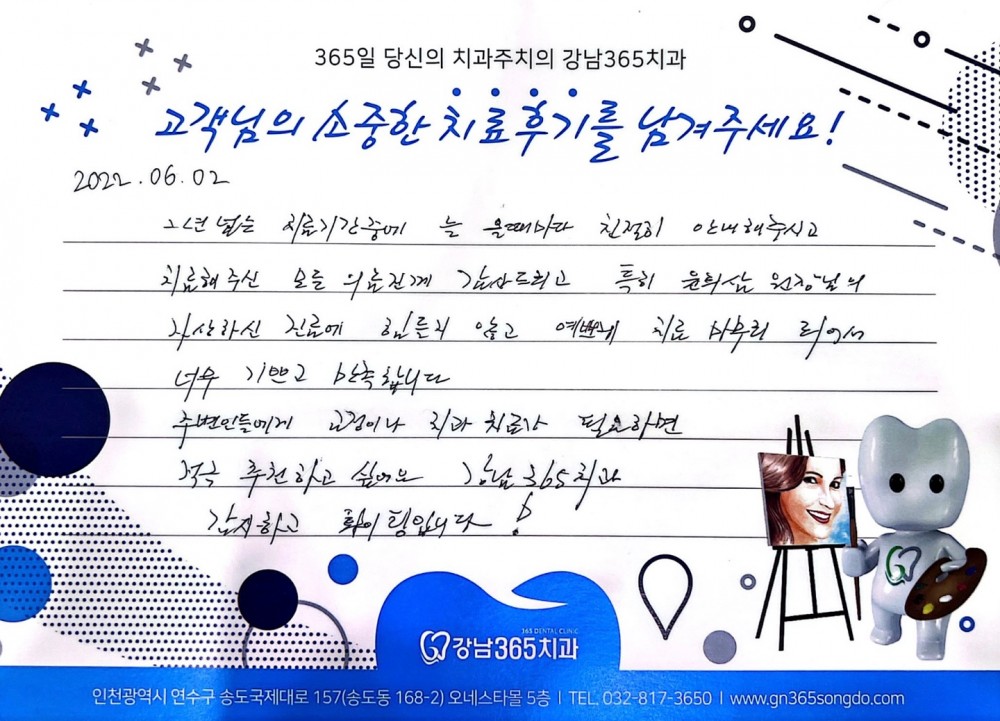 365일 당신의 치과주치의 강남365치과
고객님의 소중한 치료후기를 남겨주세요!
2022.06.02
2년 넘는 치료기간중에 늘 올때마다 친절히 안내해주시고
치료해주신 모든 의료진께 감사드리고 특히 윤희삼 원장님의
자상하신 진료에 힘들지 않고 예쁘게 치료 마무리 되어서
너무 기쁘고 만족합니다
주변인들에게 교정이나 치과 치료가 필요하면
적극 추천하고 싶어요 강남365치과
감사하고 화이팅입니다 !
365 DENTAL CLINIC
강남365치과
인천광역시 연수구 송도국제대로 157(송도동 168-2) 오네스타몰 5층 I TEL. 032-817-3650 I www.gn365songdo.com